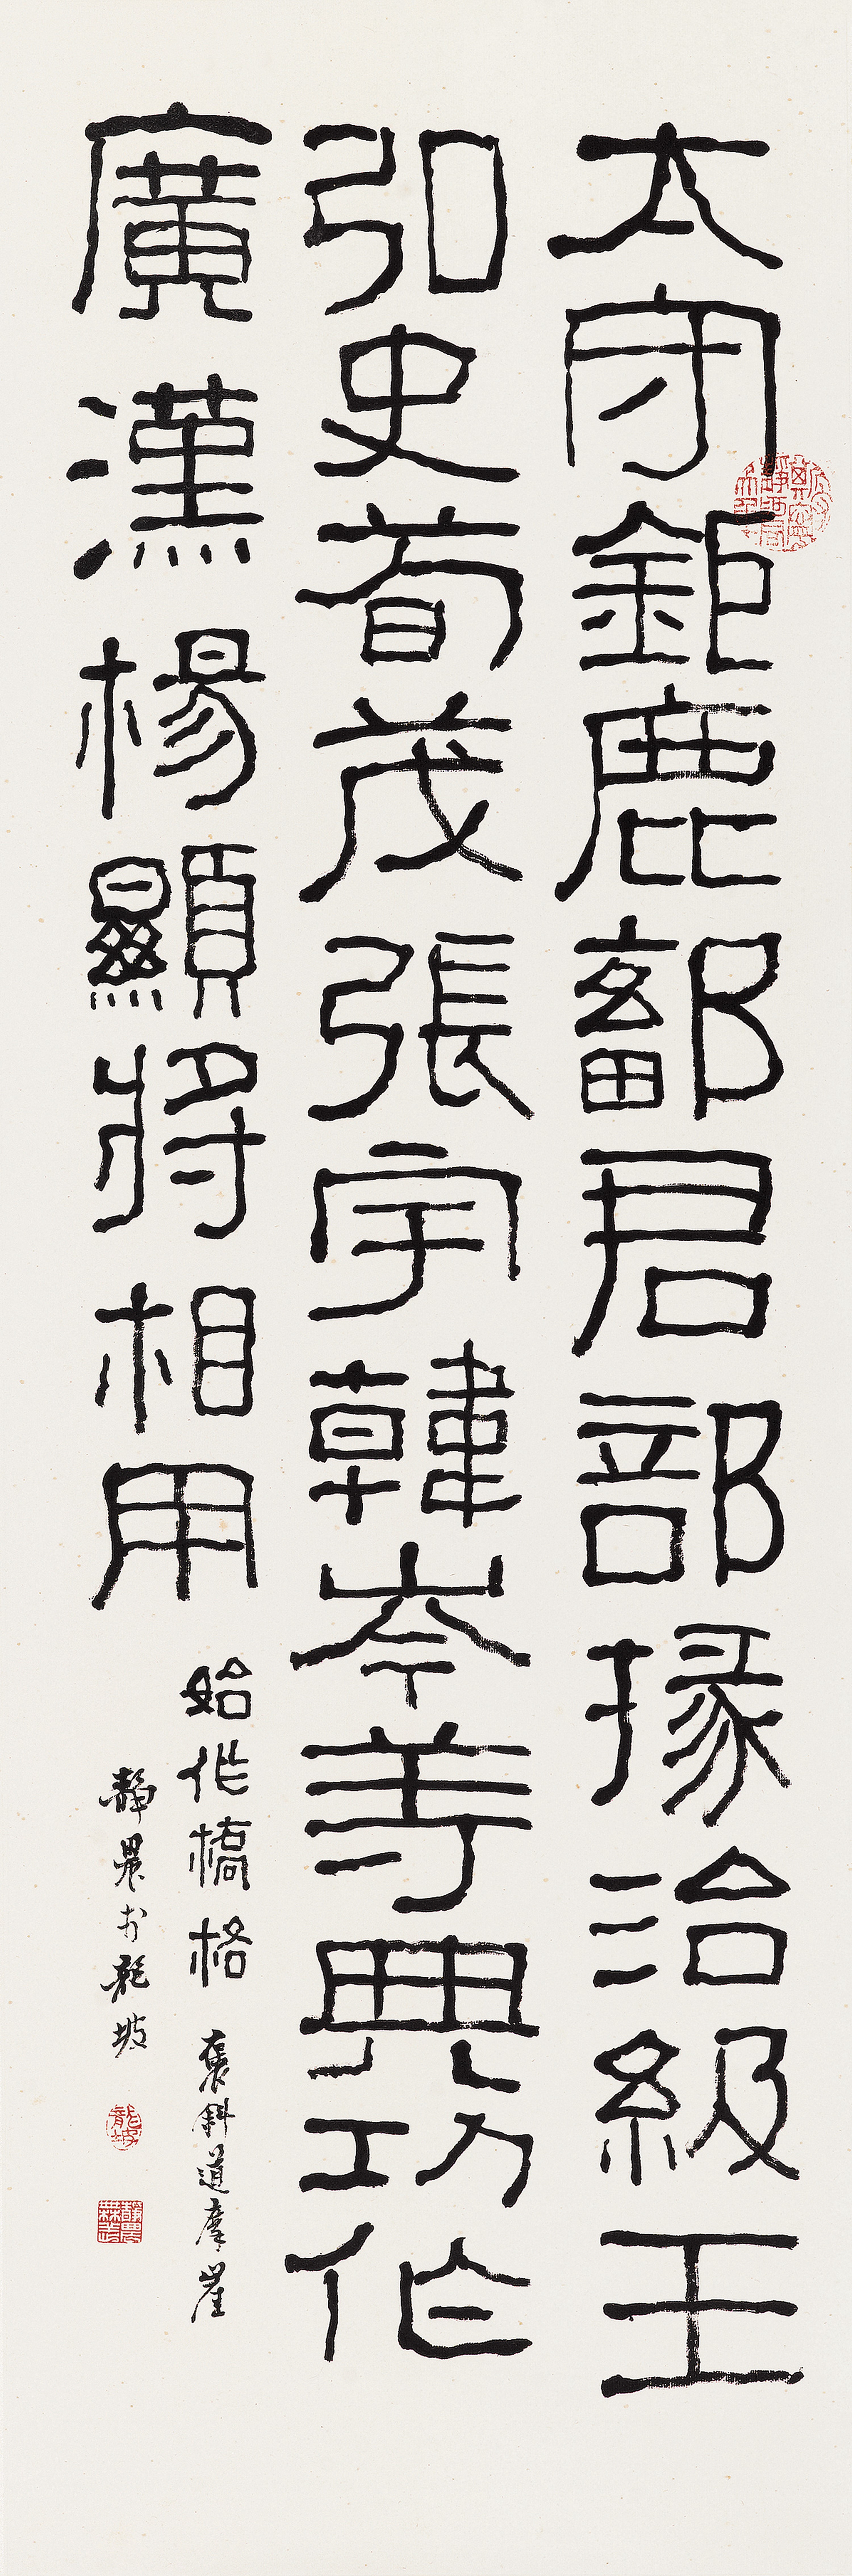 太守鉅鹿鄐君部掾治級王
弘史荀茂張宇韓岑等典功作
廣漢楊顯將相用
始作橋格
褒斜道摩崖
靜農於龍坡
龍坡